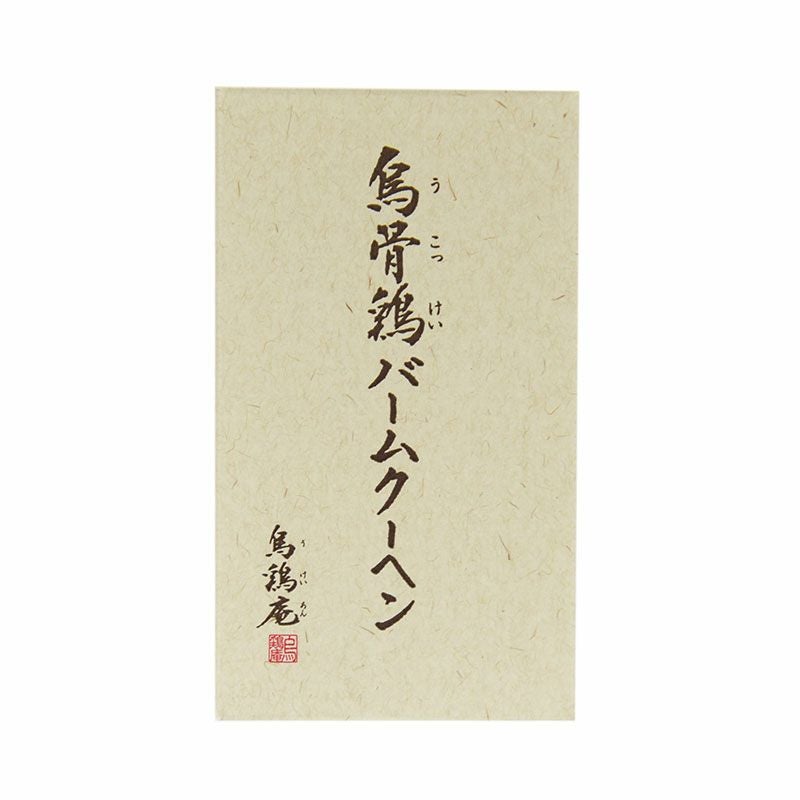 烏骨鶏バームクーヘン
うこっけい
烏鶏庵
うけいあん
烏鶏庵